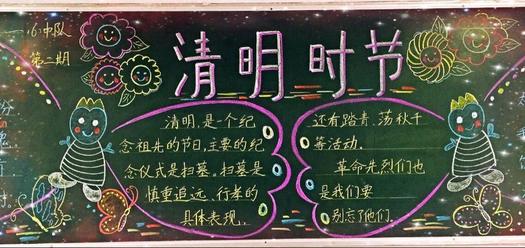 一6中队
第二期
清明时节
清明,是一个纪
念祖先的节日,主要的纪
念仪式是扫墓。扫墓是
慎重追远、行孝的
具体表现。
还有踏青、荡秋千
等活动。
革命先烈们也
是我们要
别忘了他们。